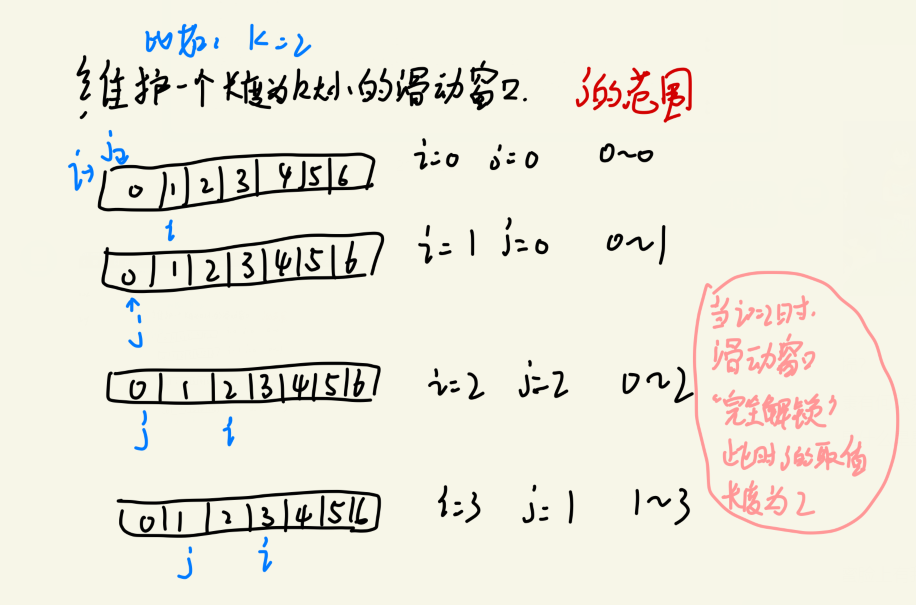 比节: k=2
维护一个长度为k大小的滑动窗口. j的范围
i→ j→
0 1 2 3 4 5 6 i=0 j=0 0~0
i
0 1 2 3 4 5 6 i=1 j=0 0~1
j
0 1 2 3 4 5 6 i=2 j=2 0~2
j i
0 1 2 3 4 5 6 i=3 j=1 1~3
j i
当i=2时.
滑动窗口
“完全解锁”
此时j的取值
长度为2